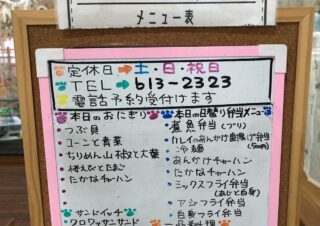 メニュー表
定休日➡土・日・祝日
TEL➡613-2323
電話予約受付けます
本日のおにぎり
つぶ貝
コーンと青菜
ちりめん山椒と大葉
桜えびとたまご
たかなチャーハン
サンドイッチ
クロワッサンサンド
本日の日替り弁当メニュー
煮魚弁当(ブリ)
カレイのあんかけ唐揚げ弁当
冷麺(500円)
あんかけチャーハン
たかなチャーハン
ミックスフライ弁当
(あじと白身)
アジフライ弁当
白身フライ弁当
一品料理